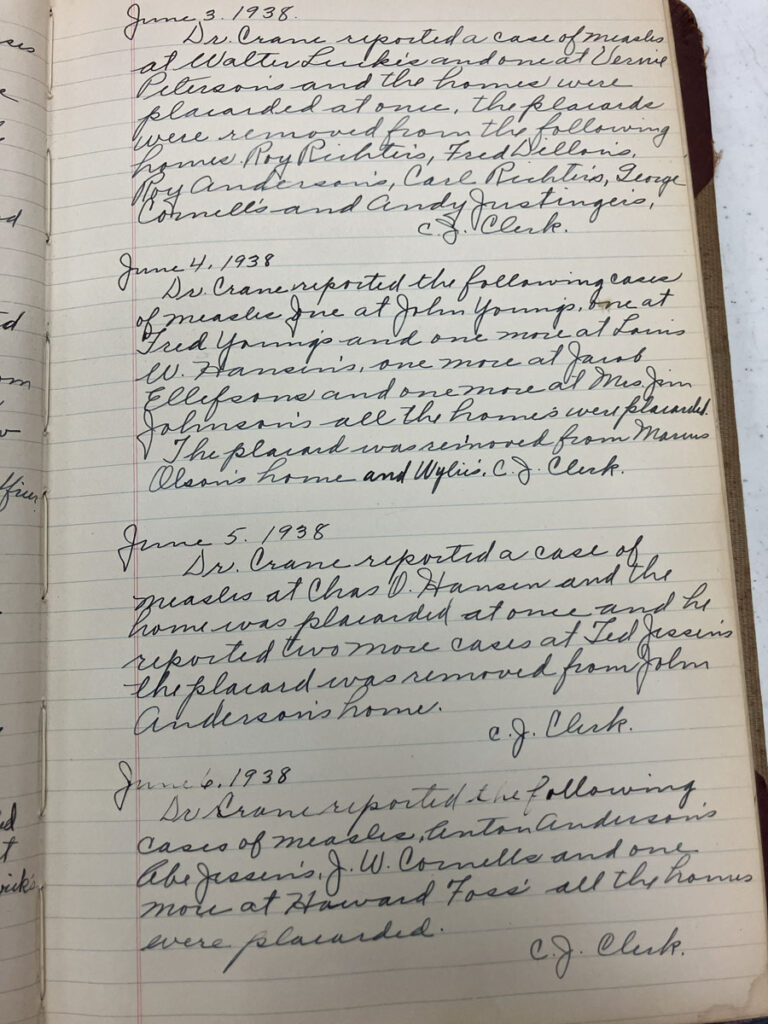 June 3. 1938.
Dr. Crane reported a case of measles
at Walter Luckes and one at Vernie
Petersons and the homes were
placarded at once, the placards
were removed from the following
homes Roy Richter's, Fred Dillon's,
Roy Anderson's, Carl Richter's, George
Cornell's and Andy Justinger's,
C. J. Clerk.
June 4, 1938
Dr. Crane reported the following cases
of measles one at John Youngs, one at
Fred Youngs and one more at Louis
W. Hansen's, one more at Jacob
Ellefsons and one more at Mrs. Jim
Johnson's all the homes were placarded.
The placard was removed from Marius
Olson's home and Wylie's. C. J. Clerk.
June 5. 1938
Dr. Crane reported a case of
measles at Chas O. Hansen and the
home was placarded at once and he
reported two more cases at Ted Jessen's
the placard was removed from John
Anderson's home.
C. J. Clerk.
June 6, 1938
Dr Crane reported the following
cases of measles, Anton Anderson's
Abe Jessen's, J. W. Cornells and one
more at Howard Foss' all the homes
were placarded.
C. J. Clerk.